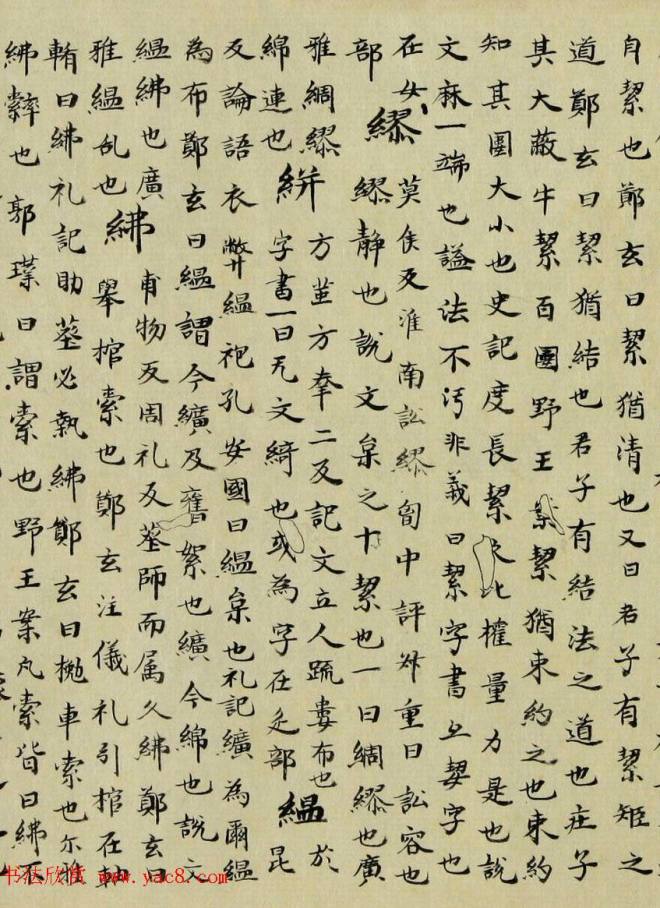 自絜也鄭玄曰絜猶清也又曰君子有絜矩之
道鄭玄曰絜猶結也君子有結法之道也庄子
其大蔽牛絜百圍野王案絜猶束約之也束約
知其圍大小也史記度長絜大比權量力是也說
文麻一端也謚法不污非義曰絜字書亦㓗字也
在女 繆 莫侯反淮南訟繆匈中評舛重曰訟容也
部 繆静也說文枲之十絜也一曰綢繆也廣
雅綢繆 絣 方莖方孝二反記文立人䟽婁布也於
綿連也 字書一曰无文綺也或為字在疋部 緼 昆
反論語衣弊緼袍孔安國曰緼枲也礼記纊為爾緼
為布鄭玄曰緼謂今纊及舊絮也纊今綿也說文
緼紼也廣 紼 甫物反周礼及塟師而属六紼鄭玄曰
雅緼乱也 舉棺索也鄭玄注儀礼引棺在軸
輴曰紼礼記助塟必執紼鄭玄曰撧車索也尓雅
紼繂也郭璞曰謂索也野王案凡索皆曰紼不
书法欣赏 www.yac8.com